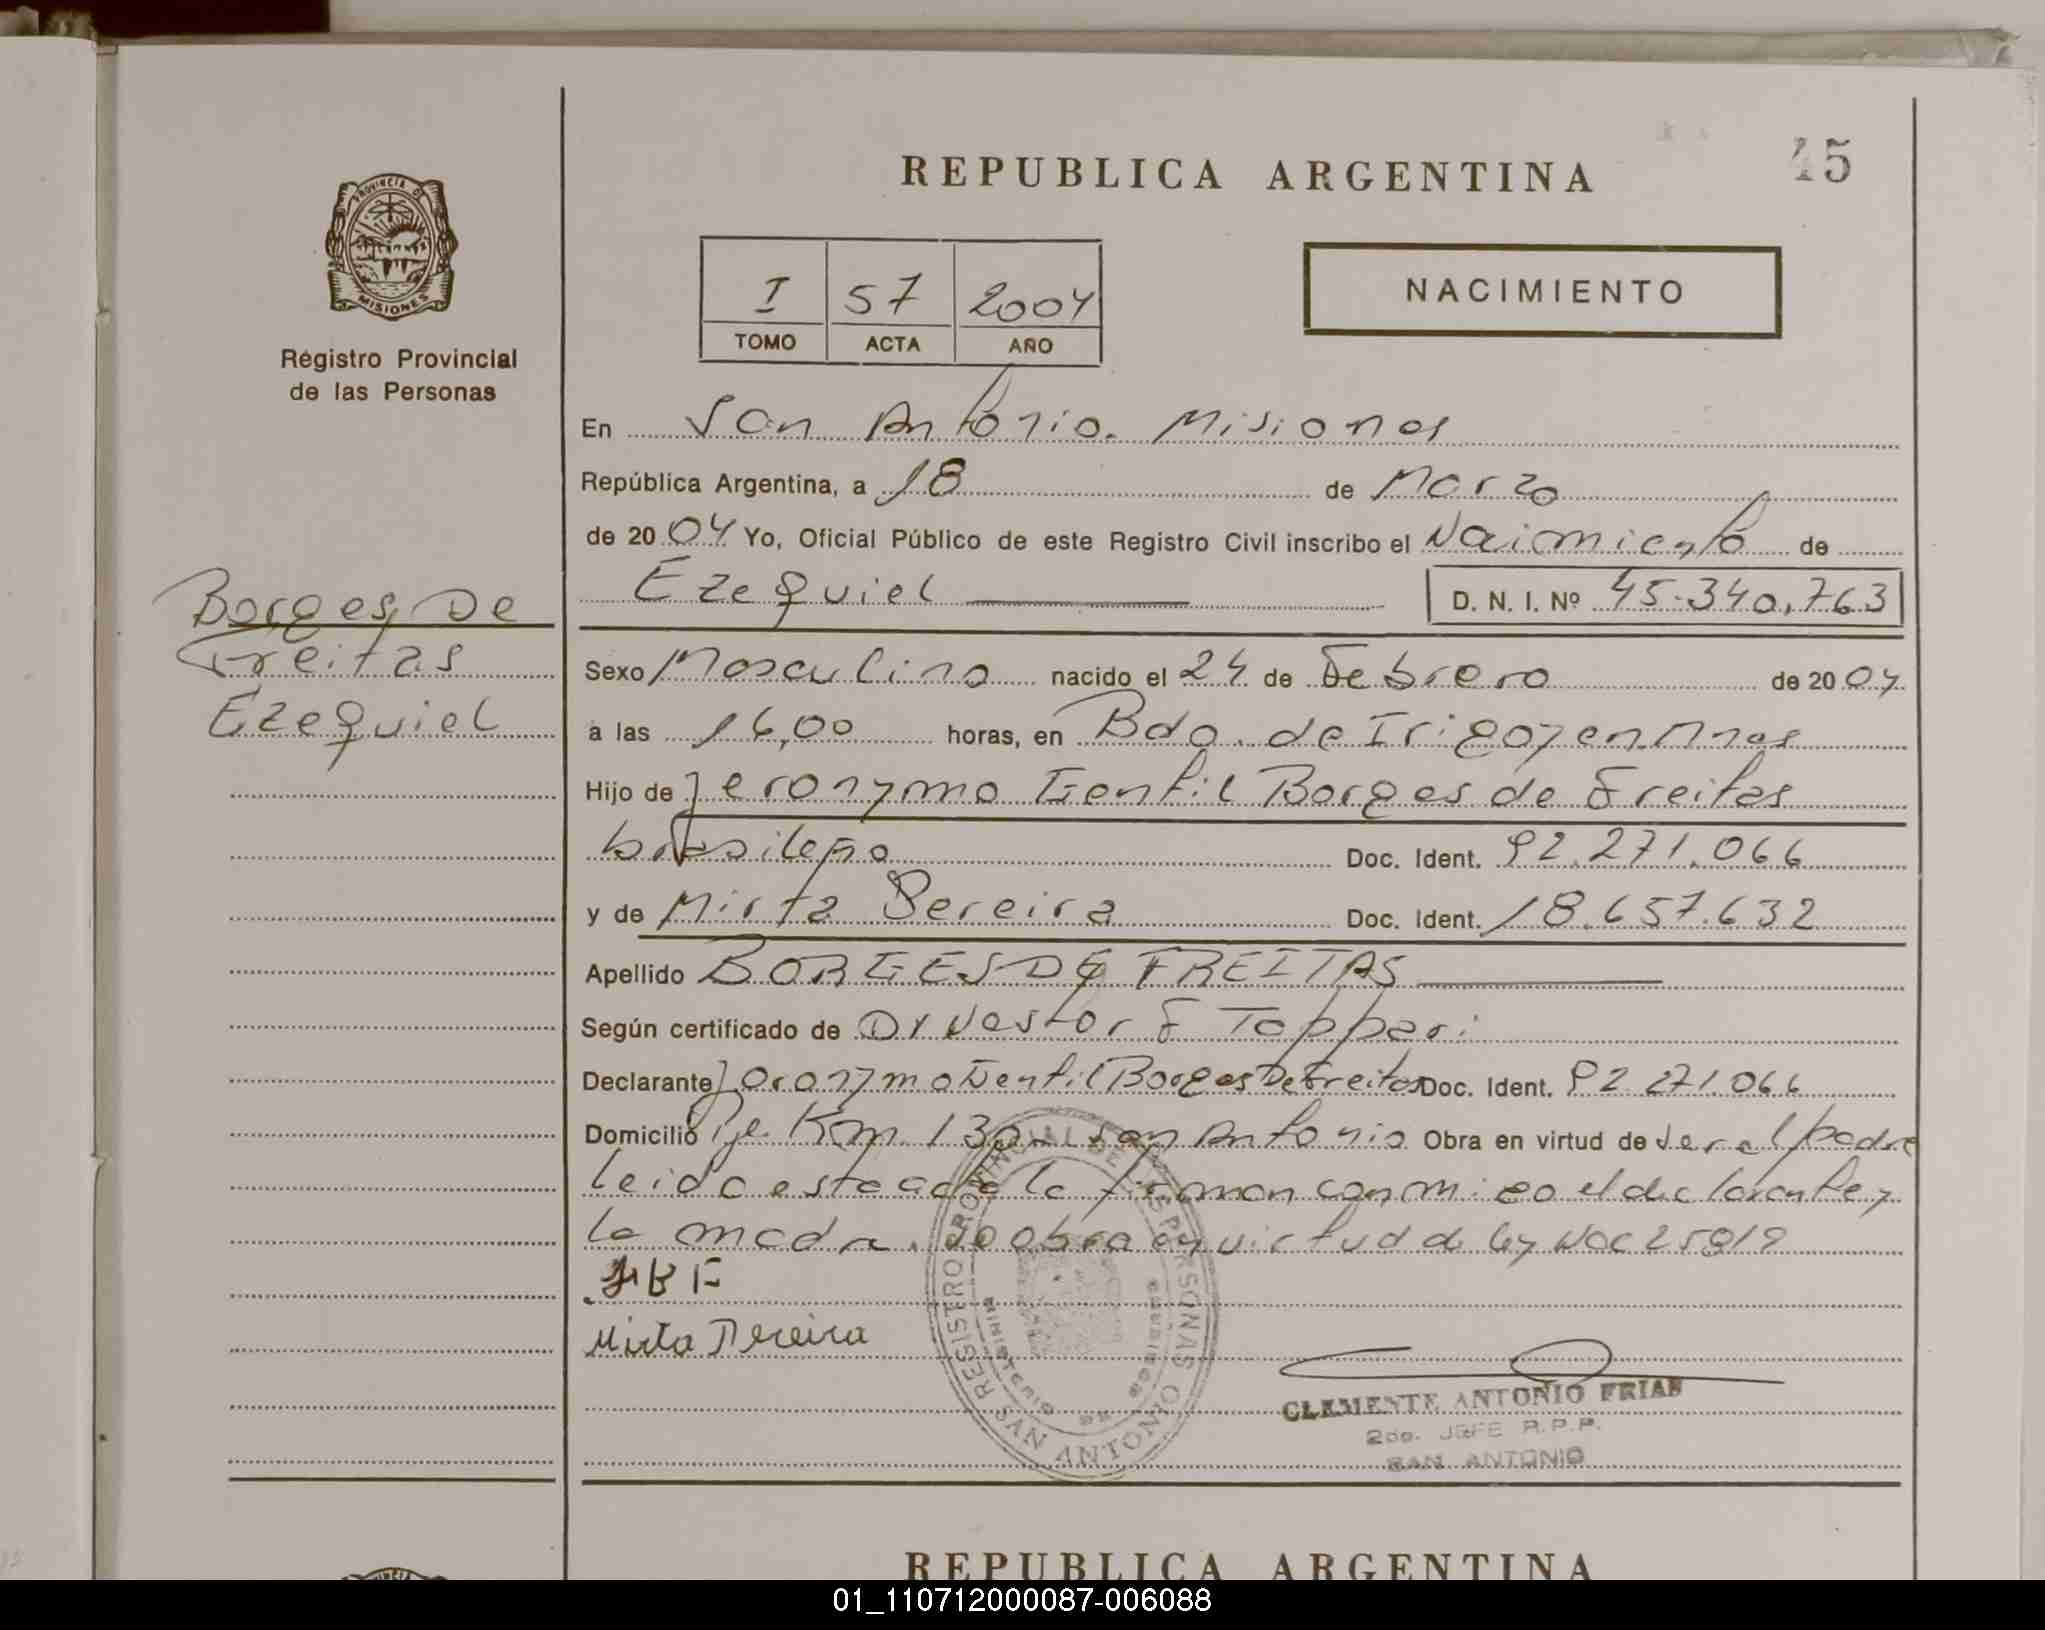 REPUBLICA ARGENTINA
45
PROVINCIA DE
MISIONES
Régistro Provincial
de las Personas
I 57 2004
TOMO ACTA AÑO
NACIMIENTO
En San Antonio. Misiones
República Argentina, a 18 de Marzo
de 20 04 Yo, Oficial Público de este Registro Civil inscribo el Naimiento de
Ezequiel D. N. I. Nº 45.340.763
Borges De
Freitas
Ezequiel
Sexo Masculino nacido el 24 de Febrero de 20 04
a las 16,00 horas, en Bdo. de Irigoyen Mnes
Hijo de Jeronymo Gentil Borges de Freitas
brasileño Doc. Ident. 92.271.066
y de Mirta Pereira Doc. Ident. 18.657.632
Apellido BORGES DE FREITAS
Según certificado de Dr Nestor F Toppari
Declarante Jeronymo Gentil Borges De Freitas Doc. Ident. 92.271.066
Domicilio Pje. Km 130 - San Antonio Obra en virtud de ser el padre
leida este acta la firman conmigo el declarante y
la madre. Se obra en virtud de ley Nac 25819
JBF
Mirta Pereira
REGISTRO PROVINCIAL DE LAS PERSONAS
MINISTERIO DE
SAN ANTONIO
CLEMENTE ANTONIO FRIAS
2do. JEFE R.P.P.
SAN ANTONIO
REPUBLICA ARGENTINA
01_110712000087-006088